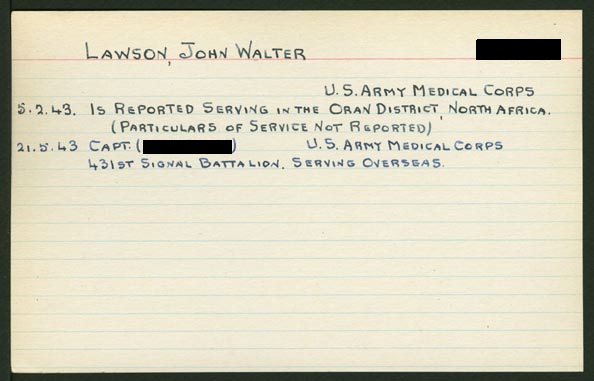 LAWSON, JOHN WALTER
U.S. ARMY MEDICAL CORPS
5.2.43. IS REPORTED SERVING IN THE ORAN DISTRICT, NORTH AFRICA.
(PARTICULARS OF SERVICE NOT REPORTED)
21.5.43 CAPT. ( ) U.S. ARMY MEDICAL CORPS
431ST SIGNAL BATTALION. SERVING OVERSEAS.